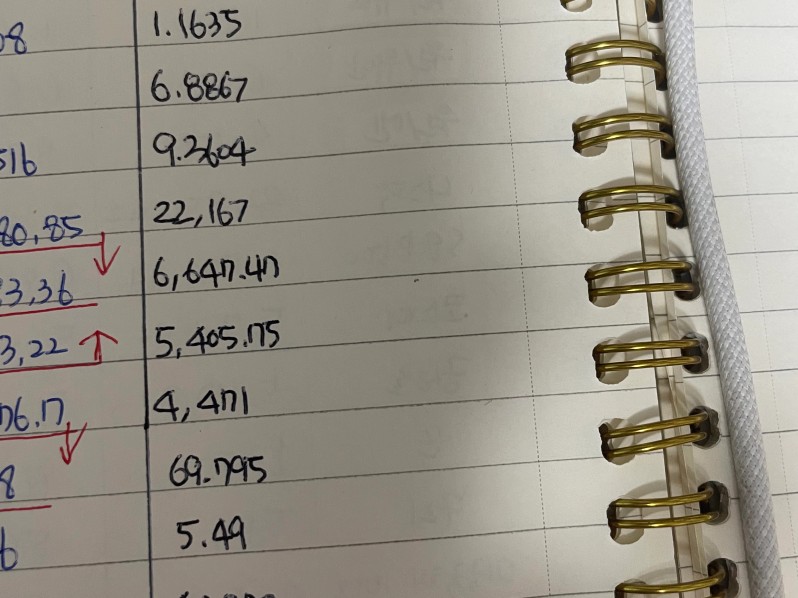 08 1.1635
6.8867
516 9.2604
80,85 22,167
3,36 6,647.47
3,22 ↑ 5,405.75
76.17 4,471
8 69.795
6 5.49